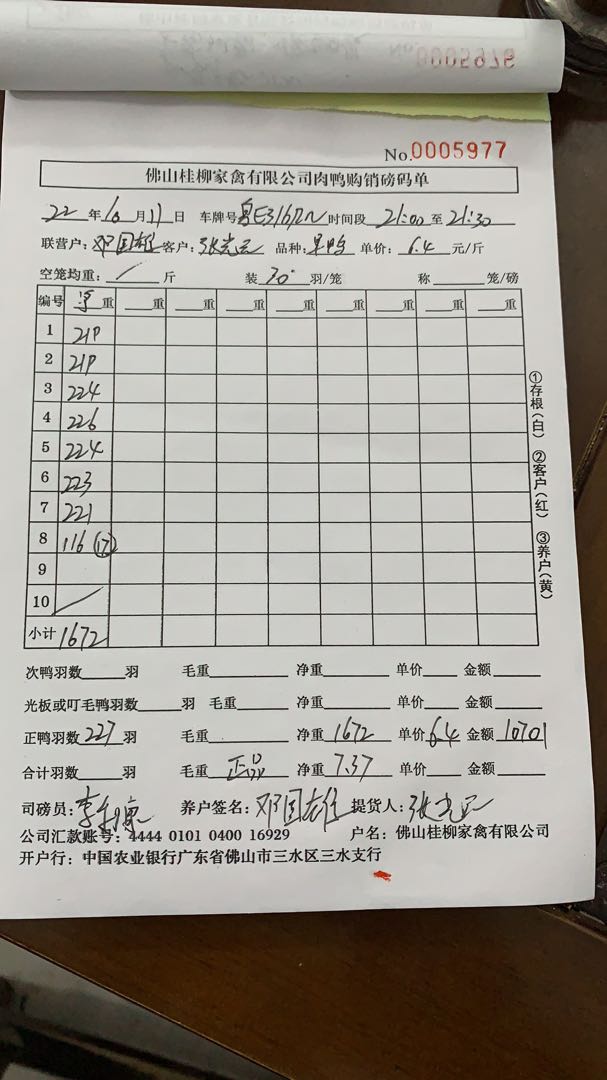 No.0005977
佛山桂柳家禽有限公司肉鸭购销磅码单
22年10月11日 车牌号 时间段 21:00 至 21:30
联营户：邓国雄 客户：张光云 品种：旱鸭 单价：6.4 元/斤
空笼均重： / 斤 装 30 羽/笼 称 笼/磅
编号 净重 重 重 重 重 重 重 重 重
1 219
2 219
3 224
4 226
5 224
6 223
7 221
8 116 (17)
9
10 /
小计 1672
①存根（白） ②客户（红） ③养户（黄）
次鸭羽数 羽 毛重 净重 单价 金额
光板或叮毛鸭羽数 羽 毛重 净重 单价 金额
正鸭羽数 227 羽 毛重 净重 1672 单价 6.4 金额 10701
合计羽数 羽 毛重 正品 净重 7.37 单价 金额
司磅员： 养户签名：邓国雄 提货人：张光云
公司汇款账号：4444 0101 0400 16929 户名：佛山桂柳家禽有限公司
开户行：中国农业银行广东省佛山市三水区三水支行